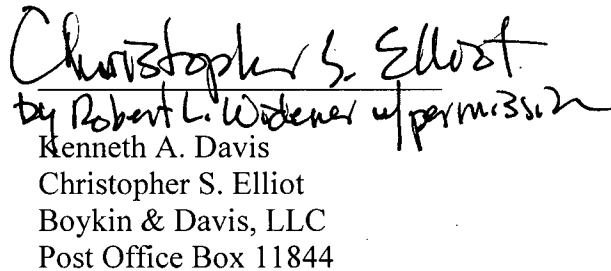 Christopher S. Elliot
by Robert L. Widener w/permission
Kenneth A. Davis
Christopher S. Elliot
Boykin & Davis, LLC
Post Office Box 11844